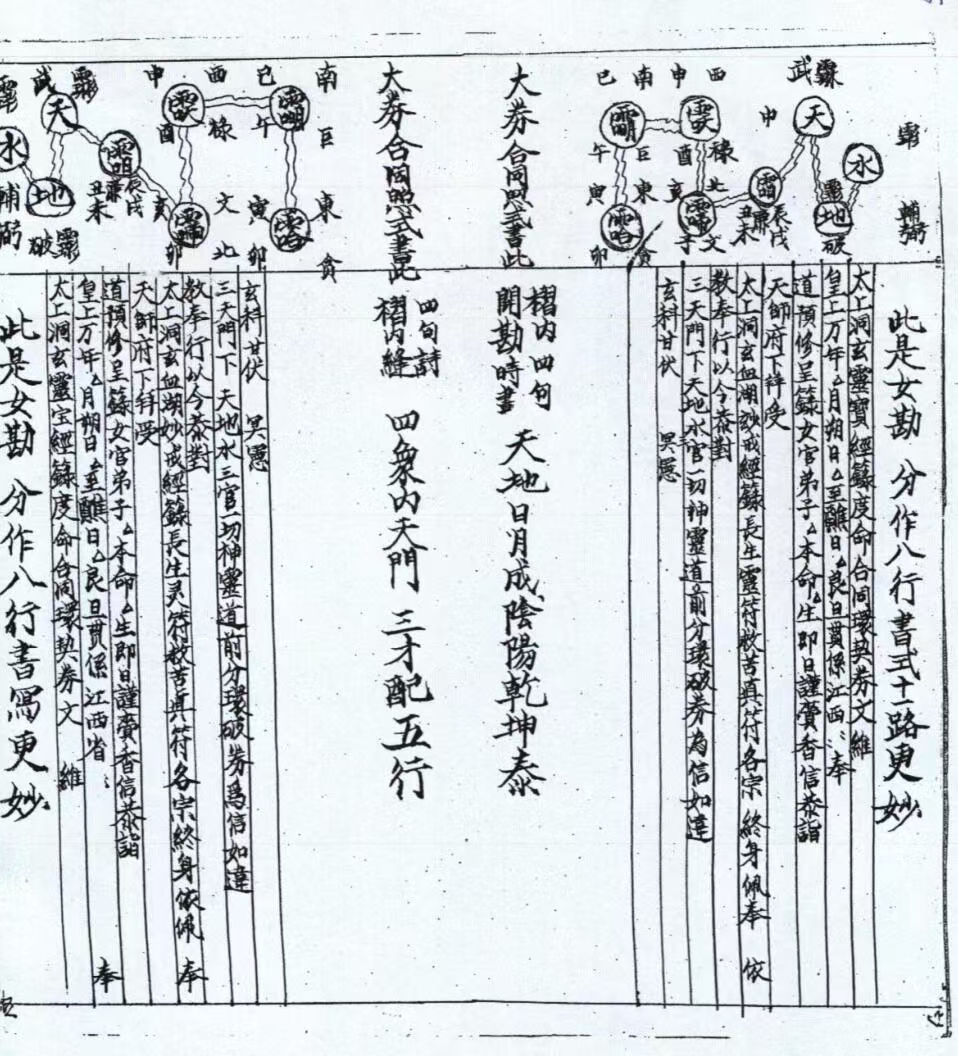 此是女勘 分作八行書式十一路更妙
太上洞玄靈寶經籙度命合同環契券文維
皇上万年厶月朔日厶至醮日厶良旦貫係江西〻奉
道預修呈籙女官弟子厶本命厶生即日謹賫香信恭詣
天師府下拜受
太上洞玄血湖玅戒經籙長生靈符救苦真符各宗終身佩奉 依
教奉行以今恭對
三天門下天地水官一切神靈道前分環破券為信如違
玄科甘伏 冥憲
武 天 申 水 輔弼 地 破
西 申 南 巳
祿 酉 巨 午
北 亥 東 寅
丑未 廉 辰戌 文 子 貪 卯
大券合同照式書此
摺内四句
開勘時書 天地日月成陰陽乾坤泰
大券合同照式書此
四句詩
摺内縫 四象内天門三才配五行
南 巳 西 申
巨 午 祿 酉
東 寅 文 亥
貪 卯 北 卯
武 天 水 地 輔弼 破
丑未 廉 辰戌
玄科甘伏 冥憲
三天門下天地水三官一切神靈道前分環破券爲信如違
教奉行以今恭對
太上洞玄血湖妙戒經籙長生灵符救苦真符各宗終身依佩 奉
天師府下拜受
道預修呈籙女官弟子厶本命厶生即日謹賫香信恭詣
皇上万年厶月朔日厶至醮日厶良旦貫係江西省〻 奉
太上洞玄靈宝經籙度命合同環契券文 維
此是女勘 分作八行書寫更妙